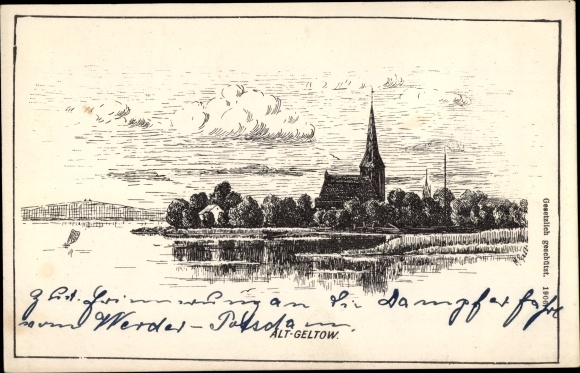 Gesetzlich geschützt. 1900
Zur Erinnerung an die Dampferfahrt
vom Werder-Potsdam.
ALT-GELTOW.